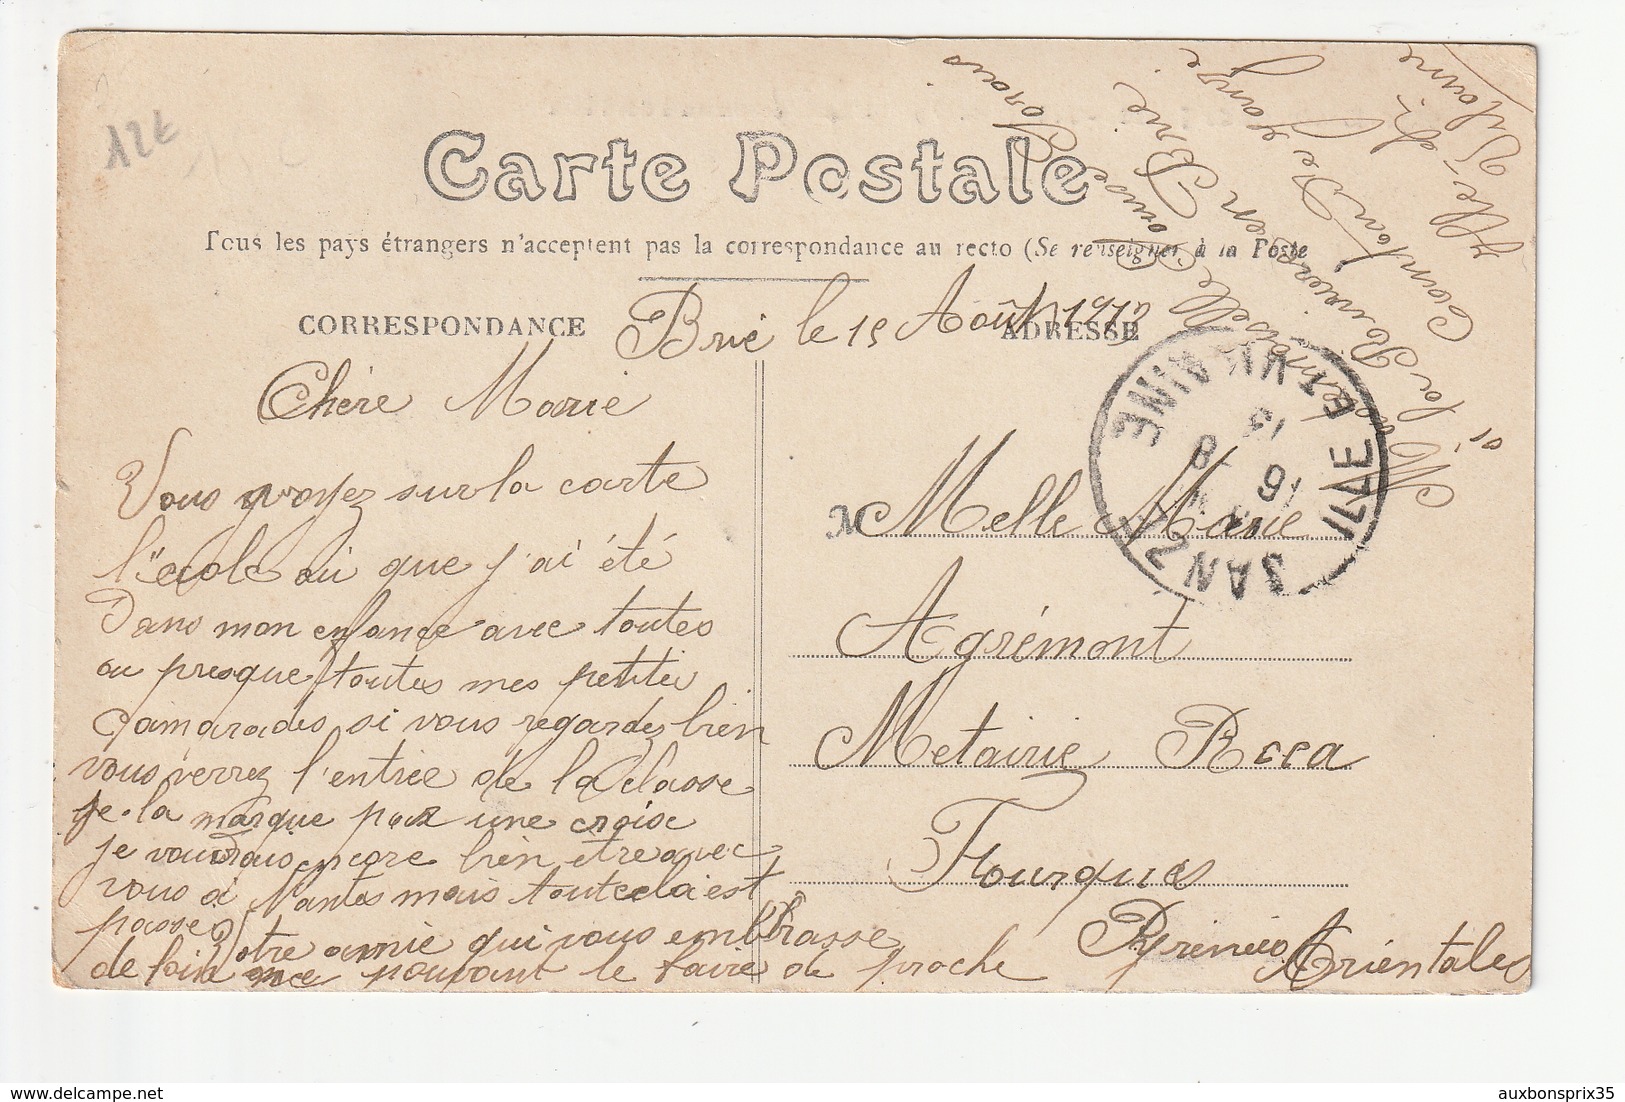 12€
Carte Postale
Tous les pays étrangers n'acceptent pas la correspondance au recto (Se renseigner à la Poste
CORRESPONDANCE
ADRESSE
Brie le 15 Août 1913
Chére Marie
Vous voyez sur la carte
l'ecole où que j'ai été
Dans mon enfance avec toutes
ou presque toutes mes petites
Camarades si vous regardez bien
vous verrez l'entrée de la Classe
je la marque par une croise
je voudrais encore bien etre avec
vous à Nantes mais tout cela est
passer
Votre amie qui vous embrasse
de loin ne pouvant le faire de proche
M Melle Marie
Agrémont
Metairie Roca
Fourques
Pyrénées Orientales
Mademoiselle Louise Dorais
à la Rivière en Brie
Canton De Janzé
Ille et Vilaine
JANZÉ
16 -8
13
ILLE ET VILAINE
auxbonsprix35